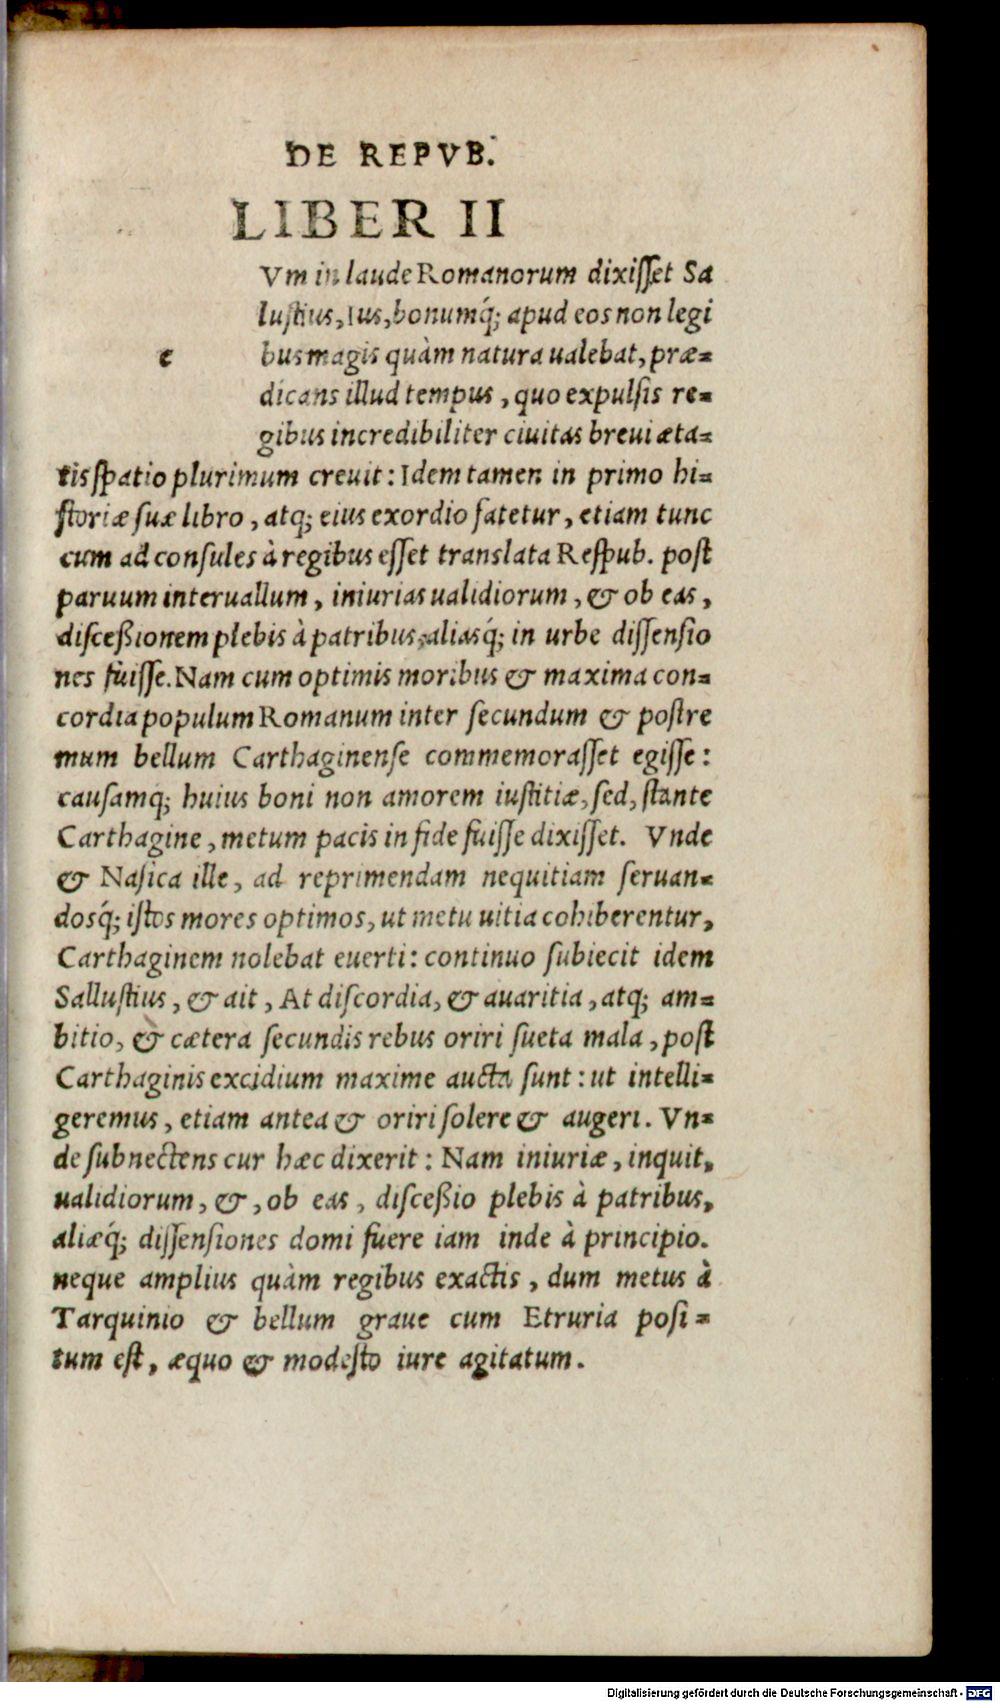 DE REPVB.
LIBER II
Vm in laude Romanorum dixisset Sa
lustius, Ius, bonumq́; apud eos non legi
c busmagis quàm natura ualebat, præ-
dicans illud tempus, quo expulsis re-
gibus incredibiliter ciuitas breui æta-
tis spatio plurimum creuit: Idem tamen in primo hi-
storiæ suæ libro, atq; eius exordio fatetur, etiam tunc
cum ad consules à regibus esset translata Respub. post
paruum interuallum, iniurias ualidiorum, & ob eas,
disceßionem plebis à patribus, aliasq́; in urbe dissensio
nes fuisse. Nam cum optimis moribus & maxima con-
cordia populum Romanum inter secundum & postre
mum bellum Carthaginense commemorasset egisse:
causamq; huius boni non amorem iustitiæ, sed, stante
Carthagine, metum pacis in fide fuisse dixisset. Vnde
& Nasica ille, ad reprimendam nequitiam seruan-
dosq́; istos mores optimos, ut metu uitia cohiberentur,
Carthaginem nolebat euerti: continuo subiecit idem
Sallustius, & ait, At discordia, & auaritia, atq; am-
bitio, & cætera secundis rebus oriri sueta mala, post
Carthaginis excidium maxime aucta sunt: ut intelli-
geremus, etiam antea & oriri solere & augeri. Vn-
de subnectens cur hæc dixerit: Nam iniuriæ, inquit,
ualidiorum, &, ob eas, disceßio plebis à patribus,
aliæq́; dissensiones domi fuere iam inde à principio.
neque amplius quàm regibus exactis, dum metus à
Tarquinio & bellum graue cum Etruria posi-
tum est, æquo & modesto iure agitatum.
Digitalisierung gefördert durch die Deutsche Forschungsgemeinschaft - DFG